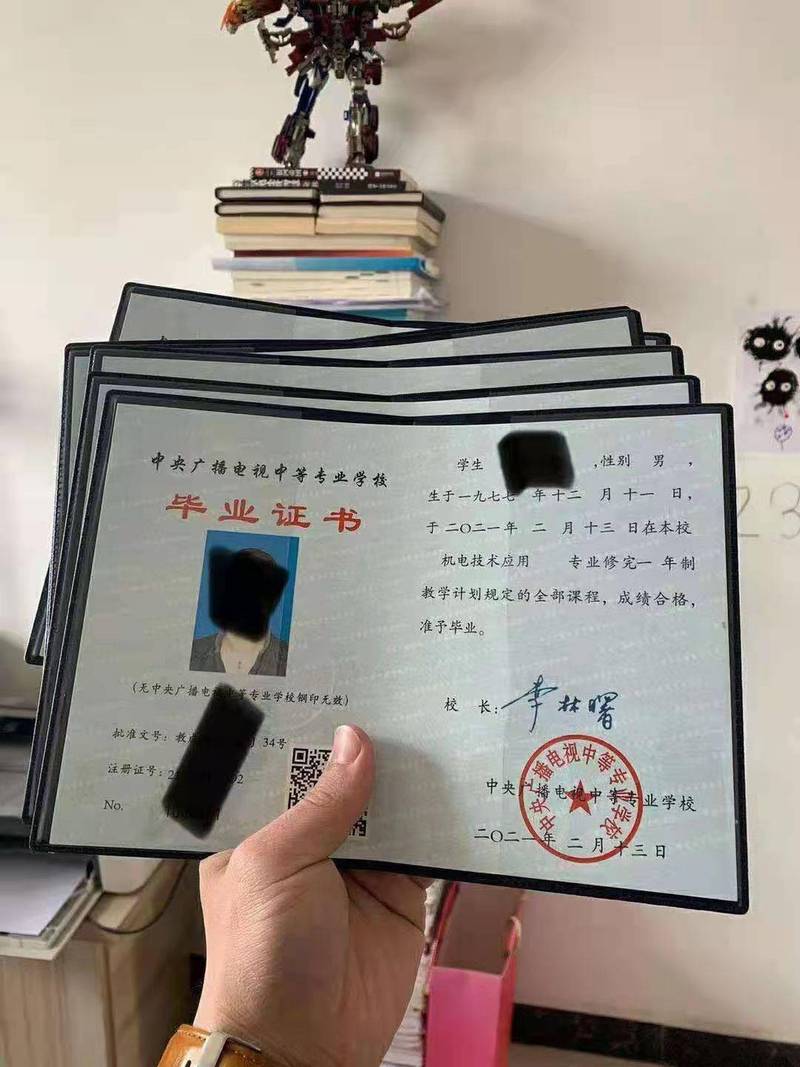 中央广播电视中等专业学校
毕业证书
(无中央广播电视中等专业学校钢印无效)
批准文号：教 34号
注册证号：2 02
No.
学生 ,性别 男 ，
生于一九七七 年十二 月十一 日，
于二〇二一年 二 月十三 日在本校
机电技术应用 专业修完一 年制
教学计划规定的全部课程，成绩合格，
准予毕业。
校 长：李林曙
中央广播电视中等专业学校
中央广播电视中等专业学校
二〇二一年 二 月十三日
23